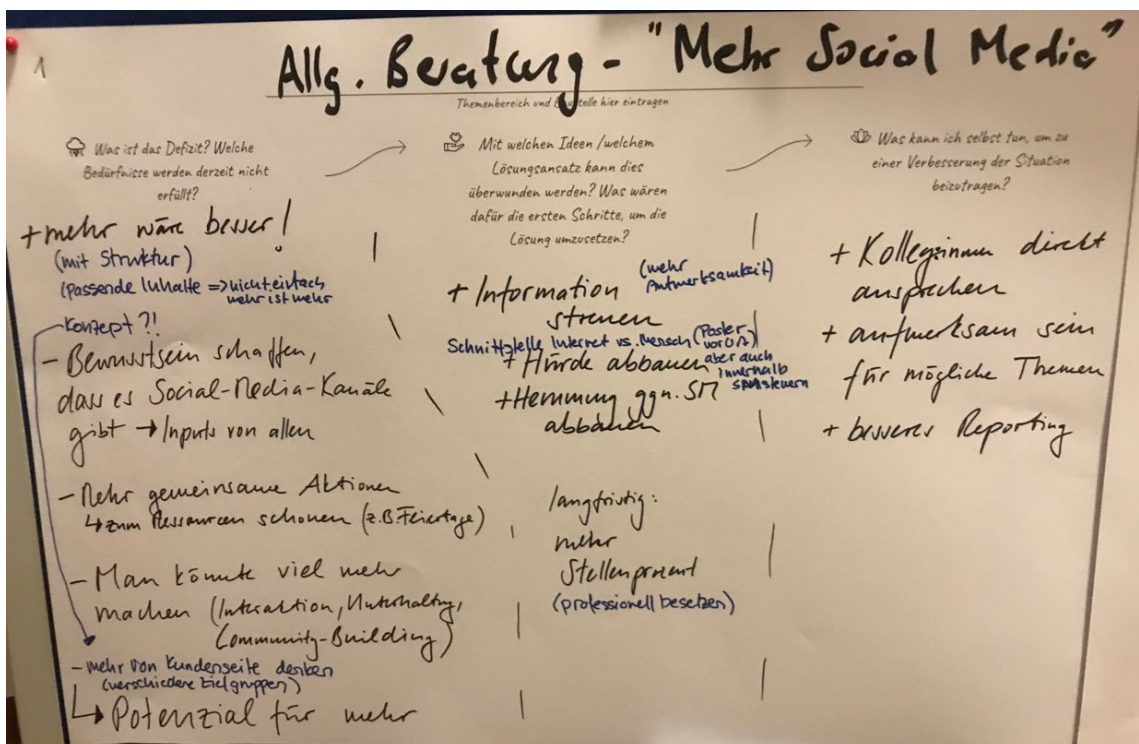 1
Allg. Beratung - "Mehr Social Media"
Themenbereich und Baustelle hier eintragen
Was ist das Defizit? Welche
Bedürfnisse werden derzeit nicht
erfüllt?
+ mehr wäre besser!
(mit Struktur)
(passende Inhalte => nicht einfach
mehr ist mehr
Konzept?!
- Bewusstsein schaffen,
dass es Social-Media-Kanäle
gibt → Inputs von allen
- Mehr gemeinsame Aktionen
↳ zum Ressourcen schonen (z.B Feiertage)
- Man könnte viel mehr
machen (Interaktion, Unterhaltung,
Community-Building)
- mehr von Kundenseite denken
(verschiedene Zielgruppen)
↳ Potenzial für mehr
Mit welchen Ideen /welchem
Lösungsansatz kann dies
überwunden werden? Was wären
dafür die ersten Schritte, um die
Lösung umzusetzen?
+ Information (mehr
Aufmerksamkeit)
streuen
Schnittstelle Internet vs. Mensch (Poster
vor Ort)
+ Hürde abbauen aber auch
innerhalb
+ Hemmung ggn. SM
abbauen
langfristig:
mehr
Stellenprozent
(professionell besetzen)
Was kann ich selbst tun, um zu
einer Verbesserung der Situation
beizutragen?
+ Kolleginnen direkt
ansprechen
+ aufmerksam sein
für mögliche Themen
+ besseres Reporting